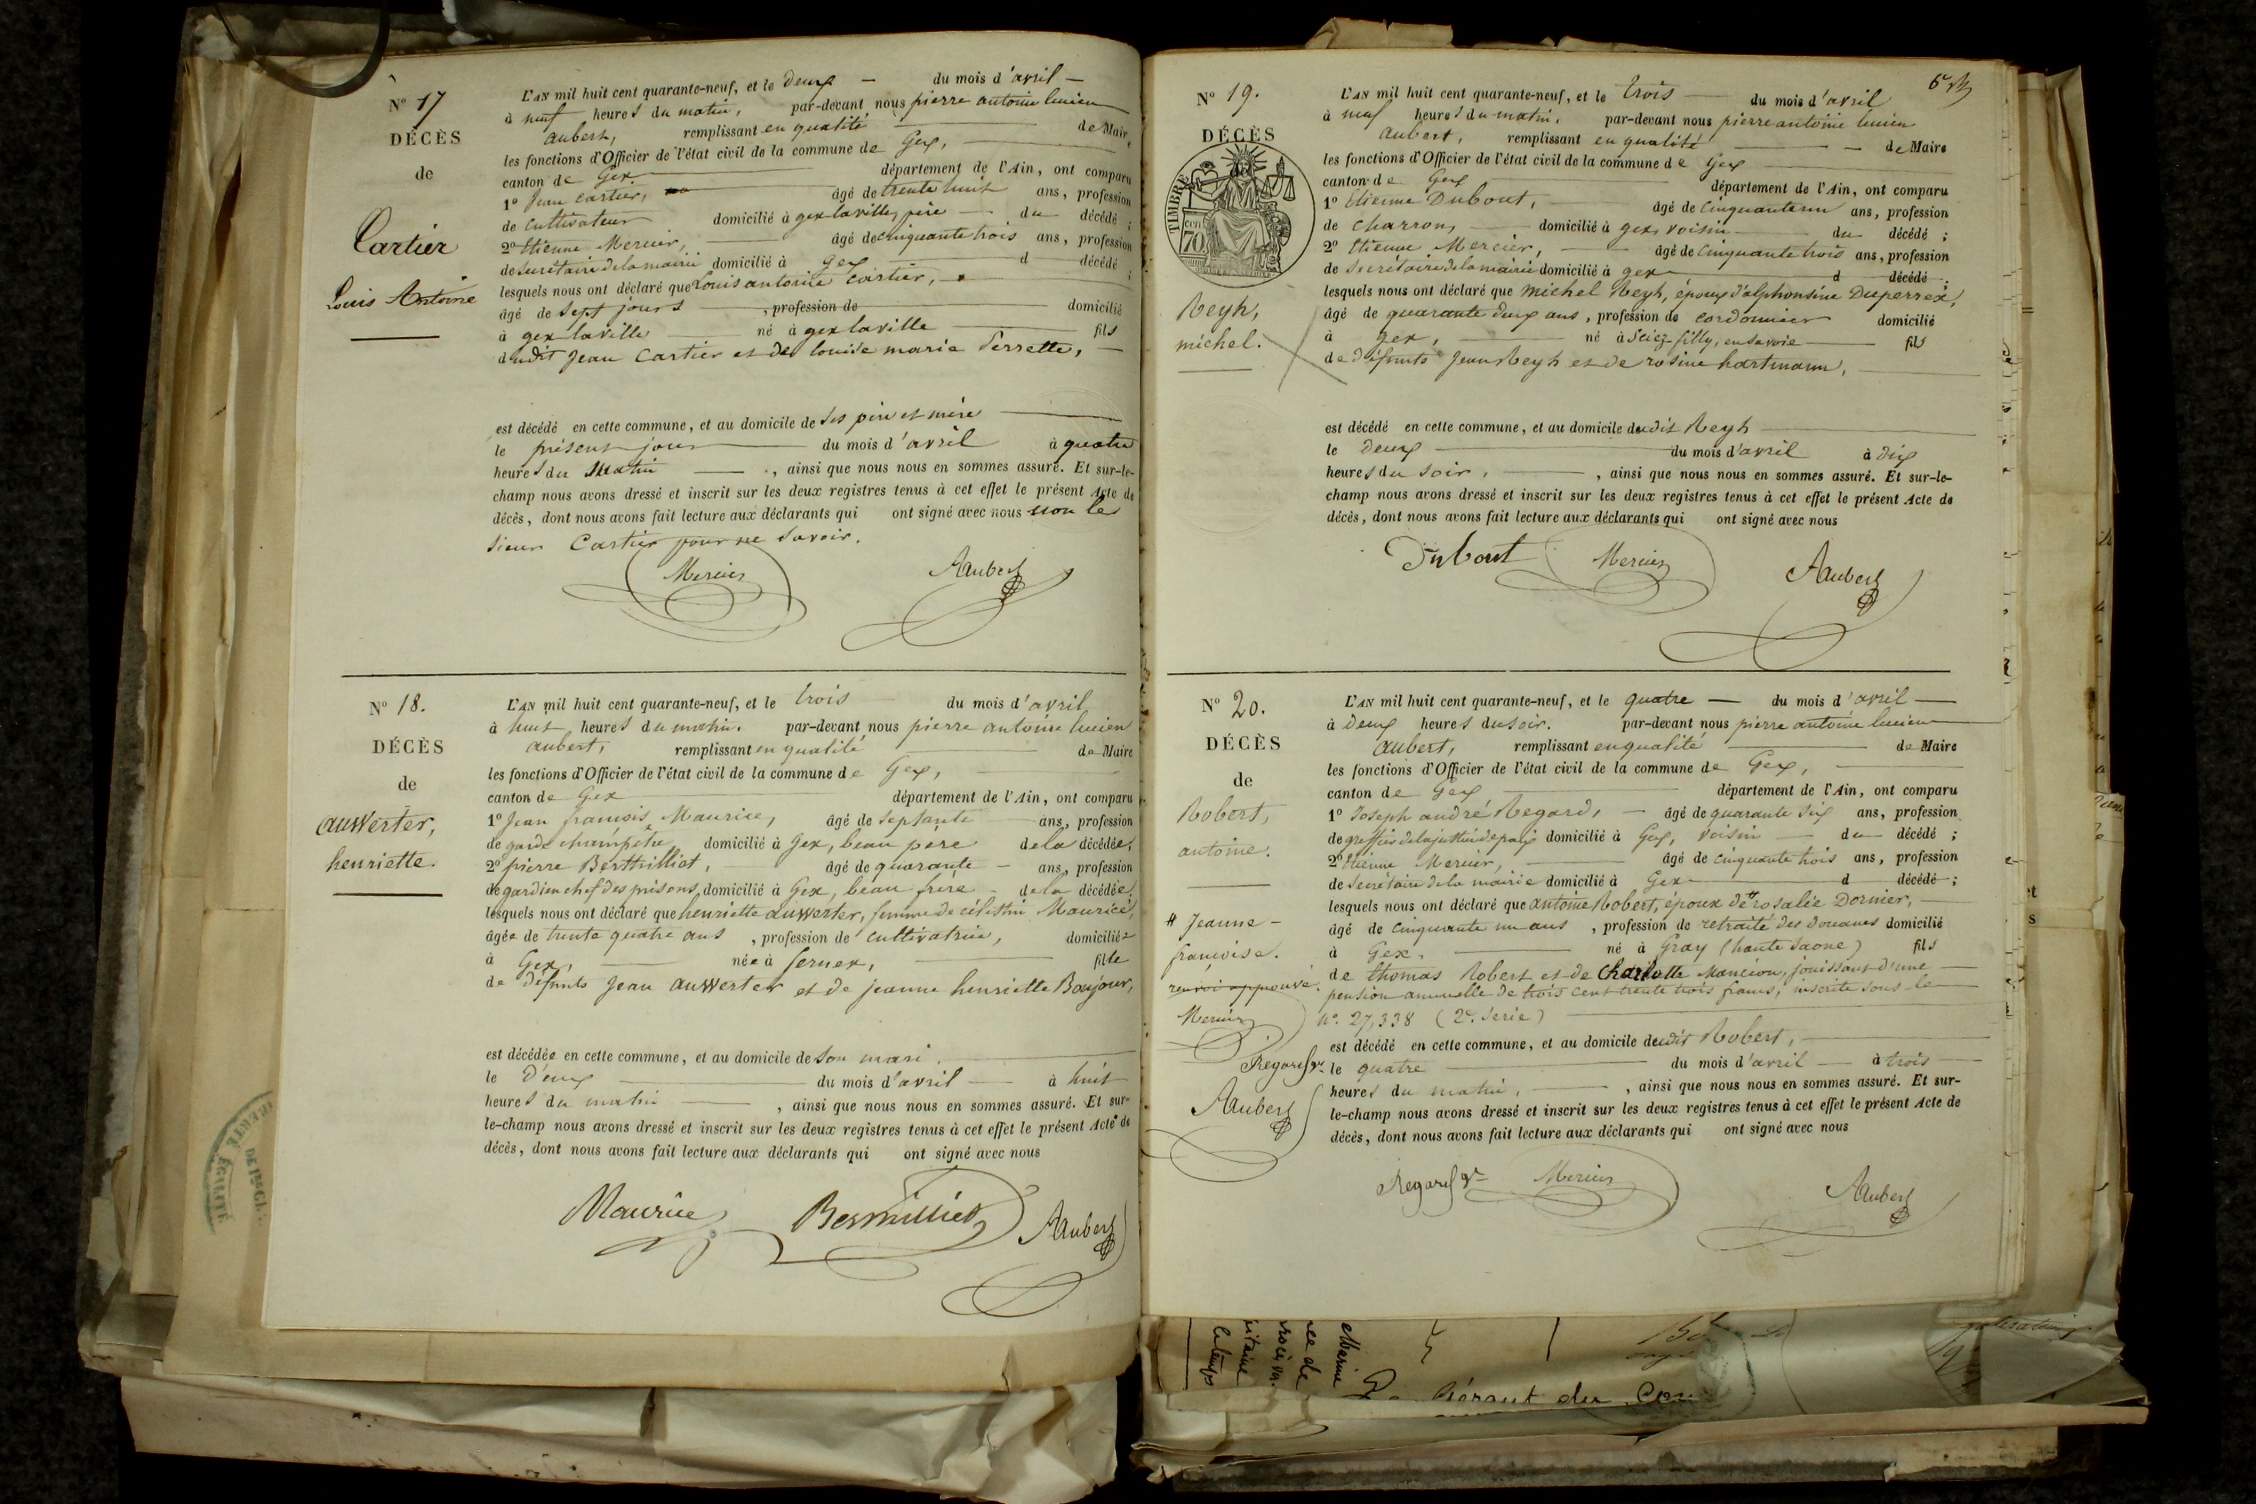 N° 17
DÉCÈS
de
Cartier
Louis Antoine
L'AN mil huit cent quarante-neuf, et le deux — du mois d'avril —
à neuf heures du matin, par-devant nous pierre antoine lucien
aubert, remplissant en qualité — de Maire,
les fonctions d'Officier de l'état civil de la commune de Gex,
canton de Gex département de l'Ain, ont comparu
1° Jean cartier, âgé de trente huit ans, profession
de cultivateur domicilié à gex laville, père — du décédé ;
2° Etienne Mercier, âgé de cinquante trois ans, profession
de secrétaire de la mairie domicilié à gex d décédé ;
lesquels nous ont déclaré que Louis antoine cartier,
âgé de sept jours, profession de domicilié
à gex laville né à gex laville fils
dudit Jean Cartier et de louise marie Perrette, —
est décédé en cette commune, et au domicile de ses père et mère
le présent jour du mois d'avril à quatre
heures du matin, ainsi que nous nous en sommes assuré. Et sur-le-
champ nous avons dressé et inscrit sur les deux registres tenus à cet effet le présent Acte de
décès, dont nous avons fait lecture aux déclarants qui ont signé avec nous non le
sieur Cartier pour ne savoir.
Mercier AAubert
N° 18.
DÉCÈS
de
auwerter,
henriette.
L'AN mil huit cent quarante-neuf, et le trois du mois d'avril
à huit heures du matin. par-devant nous pierre antoine lucien
aubert, remplissant en qualité de Maire
les fonctions d'Officier de l'état civil de la commune de Gex,
canton de Gex département de l'Ain, ont comparu
1° Jean françois Maurice, âgé de septante ans, profession
de garde champêtre domicilié à Gex, beau père de la décédée,
2° pierre Berthilliot, âgé de quarante — ans, profession
de gardien chef des prisons, domicilié à Gex, beau frère — de la décédée,
lesquels nous ont déclaré que henriette auwerter, femme de célestin Maurice,
âgée de trente quatre ans, profession de cultivatrice, domiciliée
à Gex, née à fernex, fille
de défunts Jean auwerter et de jeanne henriette Bonjour,
est décédée en cette commune, et au domicile de son mari.
le Deux du mois d'avril — à huit
heures du matin, ainsi que nous nous en sommes assuré. Et sur-
le-champ nous avons dressé et inscrit sur les deux registres tenus à cet effet le présent Acte de
décès, dont nous avons fait lecture aux déclarants qui ont signé avec nous
Maurice AAubert
N° 19.
DÉCÈS
TIMBRE
70
Reyh,
michel.
L'AN mil huit cent quarante-neuf, et le trois — du mois d'avril
à neuf heures du matin. par-devant nous pierre antoine lucien
aubert, remplissant en qualité — de Maire
les fonctions d'Officier de l'état civil de la commune de Gex
canton de Gex département de l'Ain, ont comparu
1° Etienne Dubout, âgé de cinquante un ans, profession
de charron, domicilié à gex, voisin du décédé ;
2° Etienne Mercier, âgé de cinquante trois ans, profession
de secrétaire de la mairie domicilié à gex d décédé ;
lesquels nous ont déclaré que michel Reyh, époux d'alphonsine Duperrex,
âgé de quarante deux ans, profession de cordonnier domicilié
à gex, né à Sciez filly, en savoie fils
de défunts Jean Reyh et de rosine hartmann,
est décédé en cette commune, et au domicile dudit Reyh
le Deux du mois d'avril à dix
heures du soir, ainsi que nous nous en sommes assuré. Et sur-le-
champ nous avons dressé et inscrit sur les deux registres tenus à cet effet le présent Acte de
décès, dont nous avons fait lecture aux déclarants qui ont signé avec nous
Dubout Mercier AAubert
N° 20.
DÉCÈS
de
Robert,
antoine.
# Jeanne -
françoise.
renvoi approuvé.
Mercier
Regard gr
AAubert
L'AN mil huit cent quarante-neuf, et le quatre — du mois d'avril —
à Deux heures du soir. par-devant nous pierre antoine lucien
aubert, remplissant en qualité de Maire
les fonctions d'Officier de l'état civil de la commune de Gex,
canton de Gex département de l'Ain, ont comparu
1° Joseph andré Regard, — âgé de quarante six ans, profession
de greffier de la justice de paix domicilié à Gex, voisin — du décédé ;
2° Etienne Mercier, âgé de cinquante trois ans, profession
de secrétaire de la mairie domicilié à Gex d décédé ;
lesquels nous ont déclaré que antoine Robert, époux de # rosalie Dornier,
âgé de cinquante un ans, profession de retraité des douanes domicilié
à Gex. né à Gray (haute saone) fils
de thomas Robert et de Charlotte Mancion, jouissant d'une
pension annuelle de trois cent trente trois francs, inscrite sous le
n°. 27,338 (2e. serie)
est décédé en cette commune, et au domicile dudit Robert,
le quatre du mois d'avril — à trois
heures du matin, ainsi que nous nous en sommes assuré. Et sur-
le-champ nous avons dressé et inscrit sur les deux registres tenus à cet effet le présent Acte de
décès, dont nous avons fait lecture aux déclarants qui ont signé avec nous
Regard gr Mercier AAubert